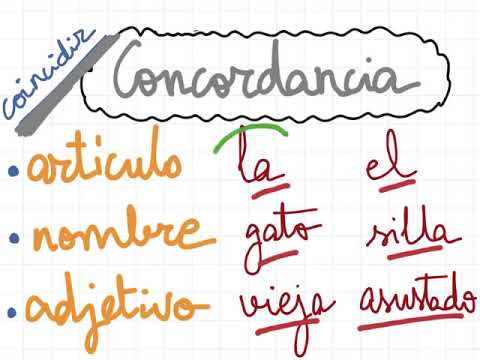 coincidir
Concordancia
• articulo la el
• nombre gato silla
• adjetivo vieja asustado